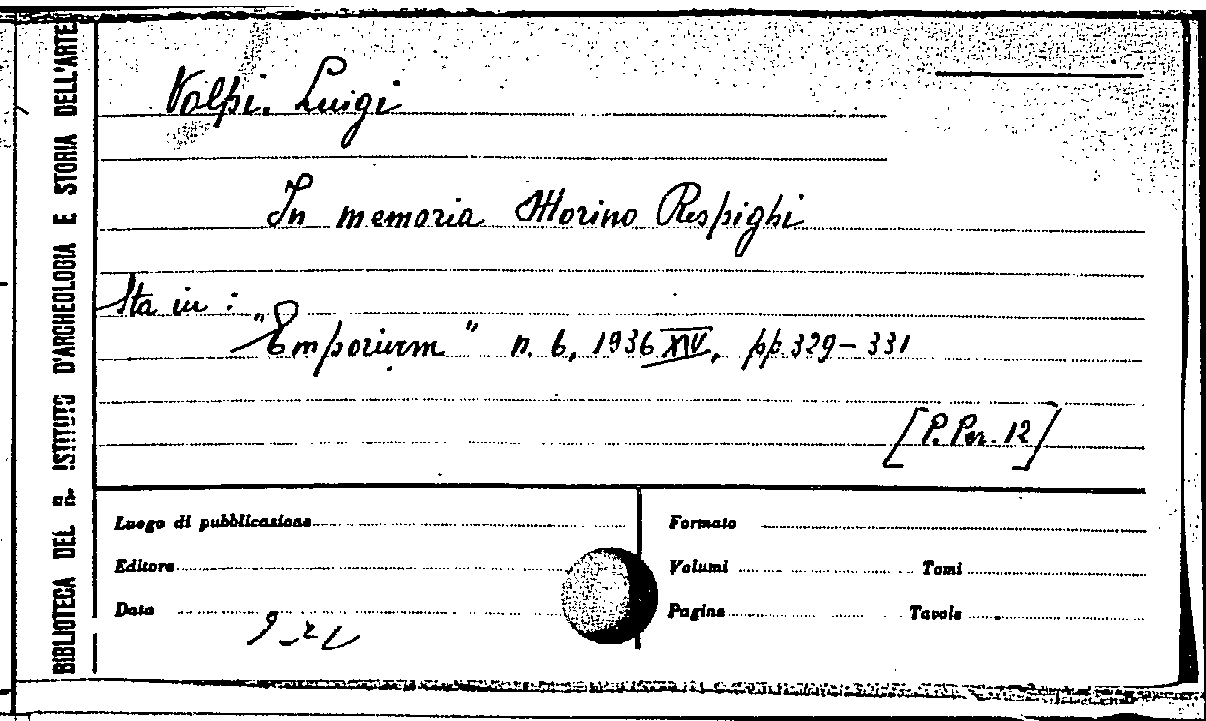 BIBLIOTECA DEL R. ISTITUTO D'ARCHEOLOGIA E STORIA DELL'ARTE
Volpi. Luigi
In memoria Morino Respighi
Sta in :
"Emporium" n. 6, 1936 XIV, pp. 329-331
[P. Per. 12]
Luogo di pubblicazione
Editore
Data
Formato
Volumi Tomi
Pagine Tavole